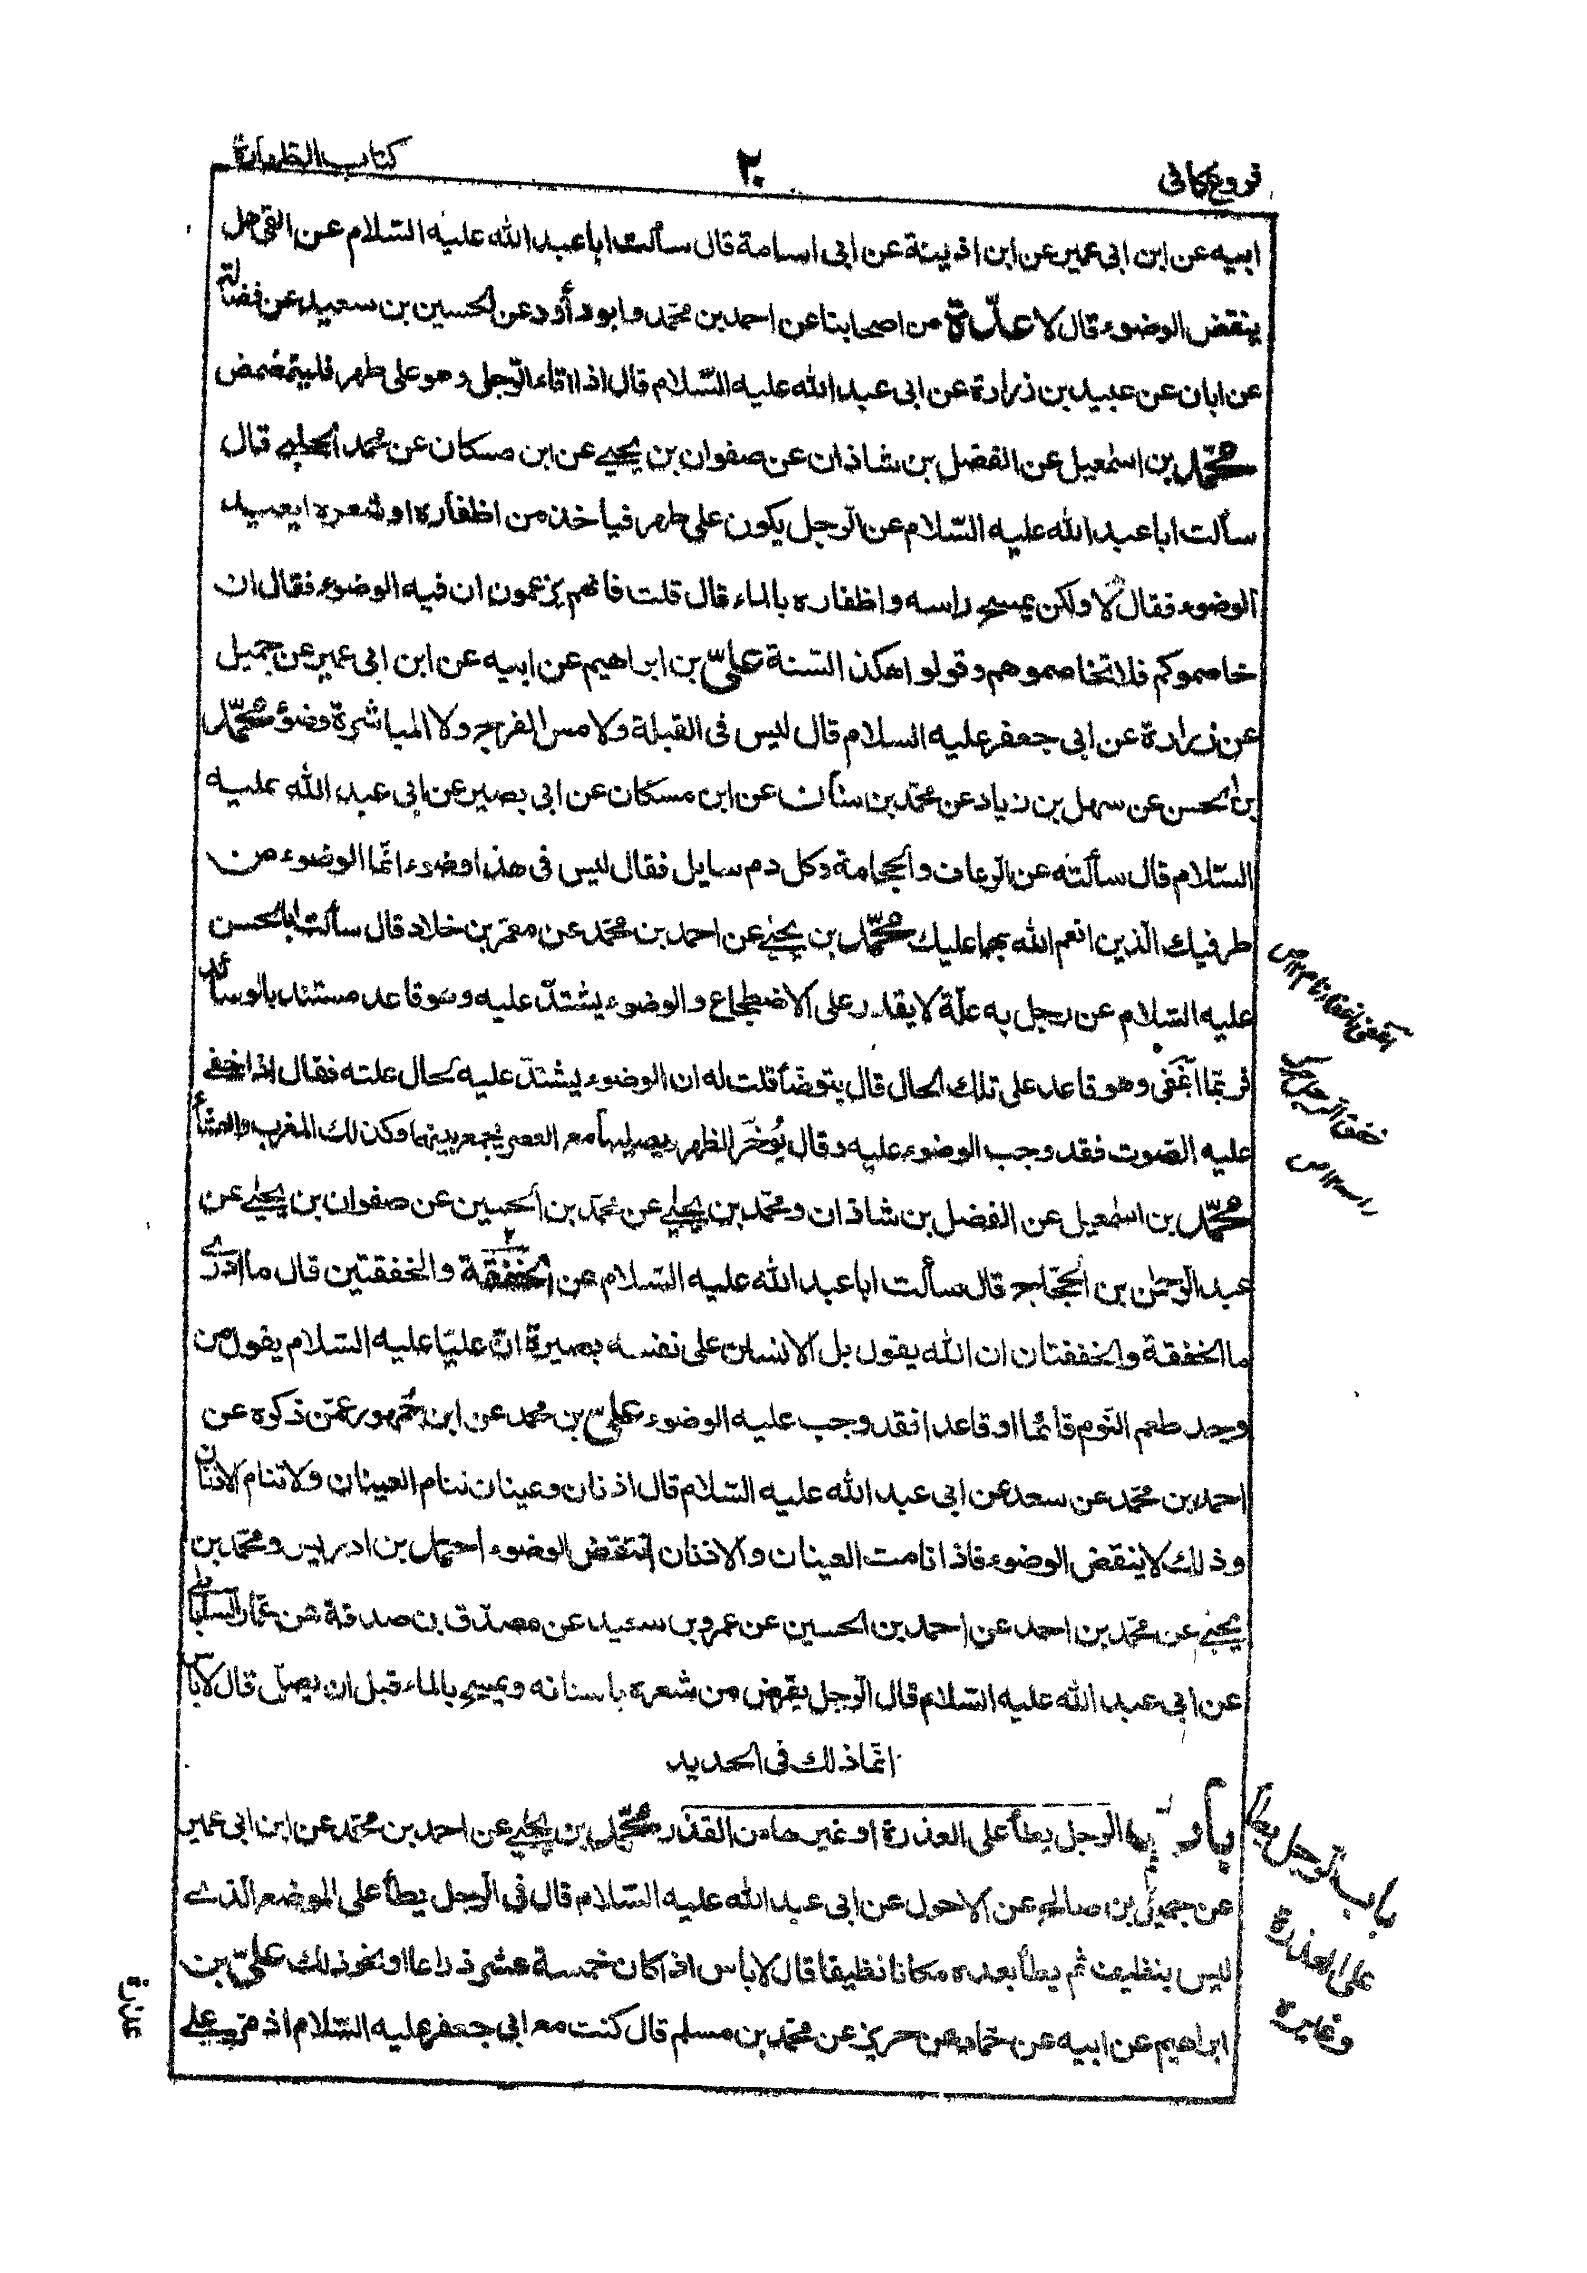 فروع كافى
٢٠
كتاب الطهارة
ابيه عن ابن ابى عمير عن ابن اذينة عن ابى اسامة قال سألت ابا عبد الله عليه السّلام عن القى هل
ينقض الوضوء قال لا عدّة من اصحابنا عن احمد بن محمّد و ابو داود عن الحسين بن سعيد عن فضالة
عن ابان عن عبيد بن زرارة عن ابى عبد الله عليه السّلام قال اذا قاء الرّجل وهو على طهر فليتمضمض
محمّد بن اسمعيل عن الفضل بن شاذان عن صفوان بن يحيى عن ابن مسكان عن محمد الحلبى قال
سألت ابا عبد الله عليه السّلام عن الرّجل يكون على طهر فياخذ من اظفاره او شعره ايعيد
الوضوء فقال لا ولكن يمسح راسه واظفاره بالماء قال قلت فانهم يزعمون ان فيه الوضوء فقال ان
خاصموكم فلا تخاصموهم وقولوا هكذا السّنة علىّ بن ابراهيم عن ابيه عن ابن ابى عمير عن جميل
عن زرارة عن ابى جعفر عليه السلام قال ليس فى القبلة ولا مس الفرج ولا المباشرة وضوء محمّد
بن الحسن عن سهل بن زياد عن محمّد بن سنان عن ابن مسكان عن ابى بصير عن ابى عبد الله عليه
السّلام قال سألته عن الرّعاف والحجامة وكل دم سايل فقال ليس فى هذا وضوء انّما الوضوء من
طرفيك الّذين انعم الله بهما عليك محمّد بن يحيى عن احمد بن محمّد عن معمّر بن خلاد قال سألت ابا الحسن
عليه السّلام عن رجل به علّة لا يقدر على الاضطجاع والوضوء يشتدّ عليه وهو قاعد مستند بالوسائد
فربّما اغفى وهو قاعد على تلك الحال قال يتوضّأ قلت له ان الوضوء يشتدّ عليه لحال علته فقال اذا خفى
عليه الصّوت فقد وجب الوضوء عليه وقال يؤخّر الظهر ويصليها مع العصر يجمع بينهما وكذلك المغرب والعشأ
محمّد بن اسمعيل عن الفضل بن شاذان ومحمّد بن يحيى عن محمّد بن الحسين عن صفوان بن يحيى عن
عبد الرّحمن بن الحجّاج قال سألت ابا عبد الله عليه السّلام عن الخفقة والخفقتين قال ما ادرى
ما الخفقة والخفقتان ان الله يقول بل الانسان على نفسه بصيرة انّ عليّا عليه السّلام يقول من
وجد طعم النّوم قائما او قاعدا فقد وجب عليه الوضوء علىّ بن محمد عن ابن جمهور عمّن ذكره عن
احمد بن محمّد عن سعد عن ابى عبد الله عليه السّلام قال اذنان وعينان تنام العينان ولا تنام الاذنان
وذلك لا ينقض الوضوء فاذا نامت العينان والاذنان انتقض الوضوء احمد بن ادريس ومحمّد بن
يحيى عن محمّد بن احمد عن احمد بن الحسين عن عمرو بن سعيد عن مصدّق بن صدقة عن عمّار السّاباطى
عن ابى عبد الله عليه السّلام قال الرّجل يقرض من شعره باسنانه ويمسح بالماء قبل ان يصلّى قال لا بأس
انّما ذلك فى الحديد
باب الرجل يطأ على العذرة او غيرها من القذر محمّد بن يحيى عن احمد بن محمّد عن ابن ابى عمير
عن جميل بن صالح عن الاحول عن ابى عبد الله عليه السّلام قال فى الرّجل يطأ على الموضع الّذى
ليس بنظيف ثم يطأ بعده مكانا نظيفا قال لا باس اذا كان خمسة عشر ذراعا او نحو ذلك علىّ بن
ابراهيم عن ابيه عن حمّاد عن حريز عن محمّد بن مسلم قال كنت مع ابى جعفر عليه السّلام اذ مرّ على
عذرة